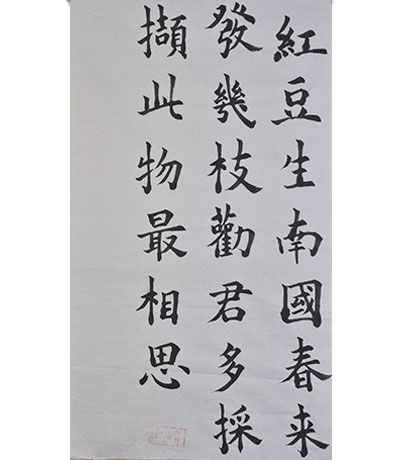 紅豆生南國春来
發幾枝勸君多採
擷此物最相思